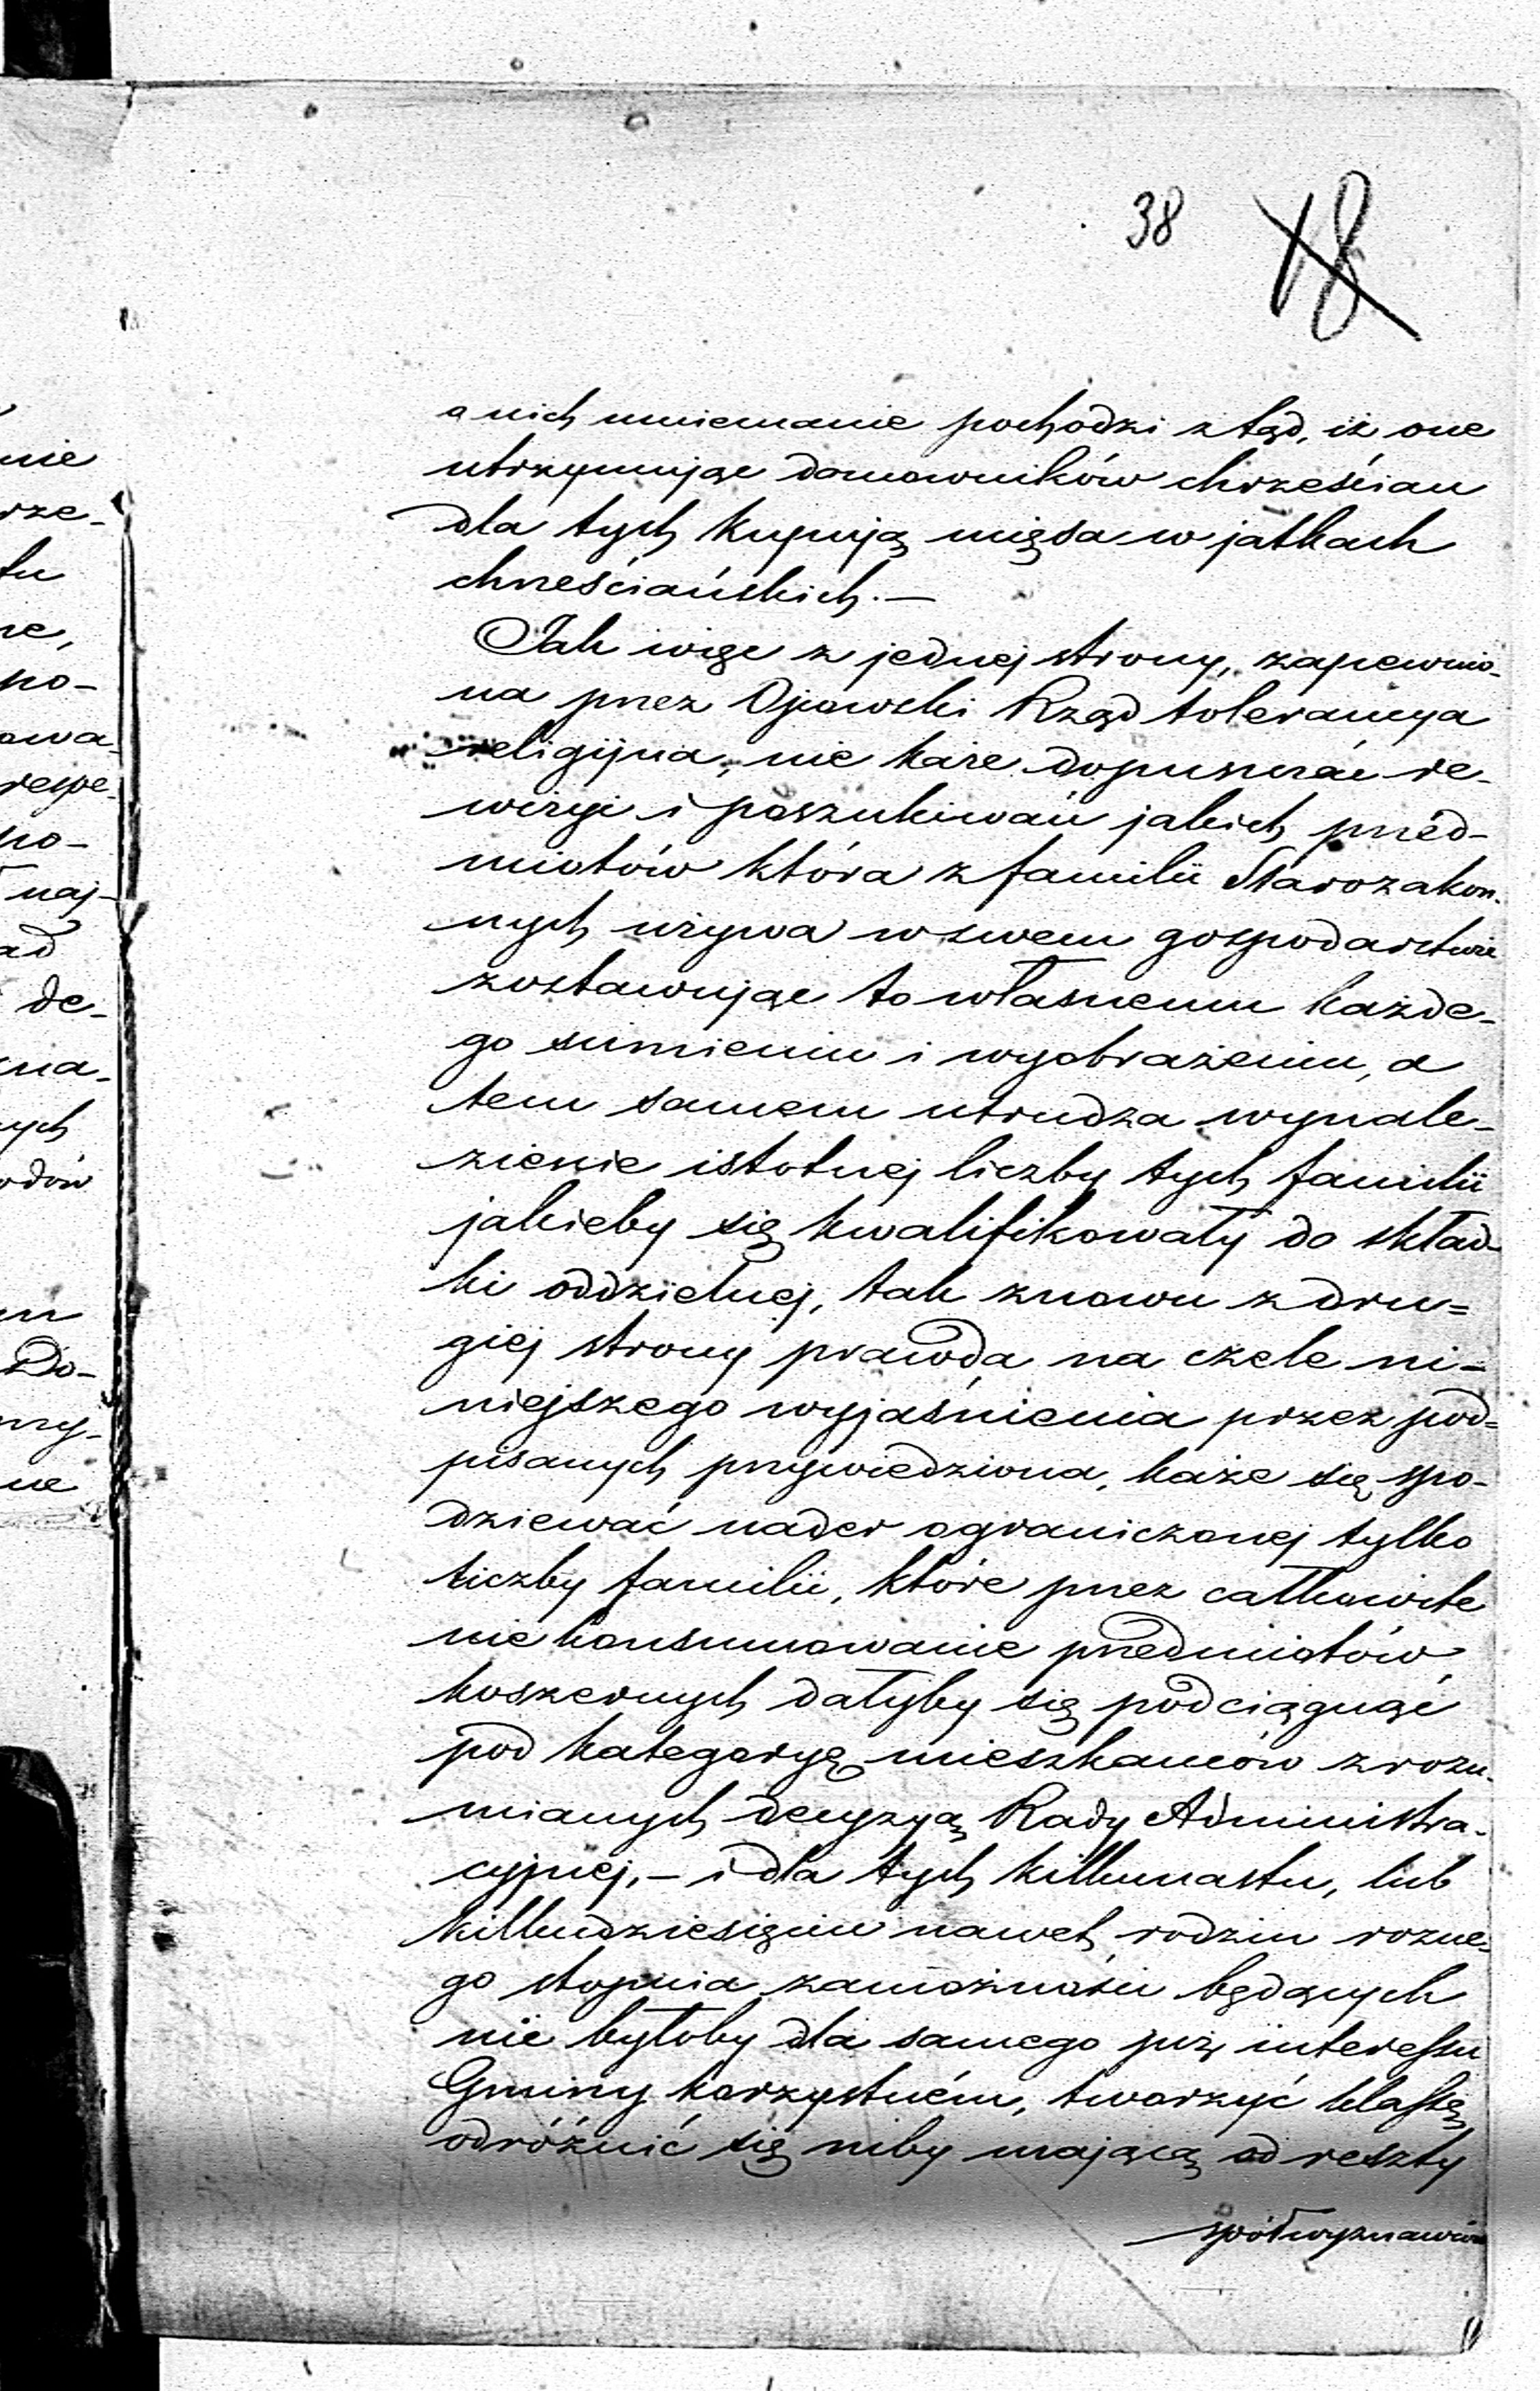 38 18
o nich mniemanie pochodzi ztąd, iż one
utrzymując domowników chrześcian
dla tych kupują mięsa w jatkach
chrześciańskich. —
Jak więc z jednej strony, zapewnio-
na przez Ojcowski Rząd tolerancya
religijna, nie każe dopuszczać re-
wizyi i poszukiwań jakich przed-
miotów która z familii Starozakon-
nych używa w swem gospodarstwie
zostawując to własnemu każde-
go sumieniu i wyobrażeniu, a
tem samem utrudza wynale-
zienie istotnej liczby tych familii
jakieby się kwalifikowały do skład-
ki oddzielnej, tak znowu z dru=
giej strony prawda na czele ni-
niejszego wyjaśnienia przez pod=
pisanych przywiedziona, każe się spo-
dziewać nader ograniczonej tylko
liczby familii, które przez całkowite
nie konsumowanie przedmiotów
koszernych dałyby się podciągnąć
pod kategoryę mieszkańców zrozu-
mianych decyzyą Rady Administra-
cyjnej, — i dla tych kilkunastu, lub
kilkudziesięciu nawet rodzin rozne-
go stopnia zamożności będących
nie byłoby dla samego już interessu
Gminy korzystném, tworzyć klassę
odróżnić się niby mającą od reszty
spółwyznawców
nie
rze-
tu
re,
po-
owa-
respe-
po-
naj-
ad
de-
na-
ych
odów
Do-
ny-
ne